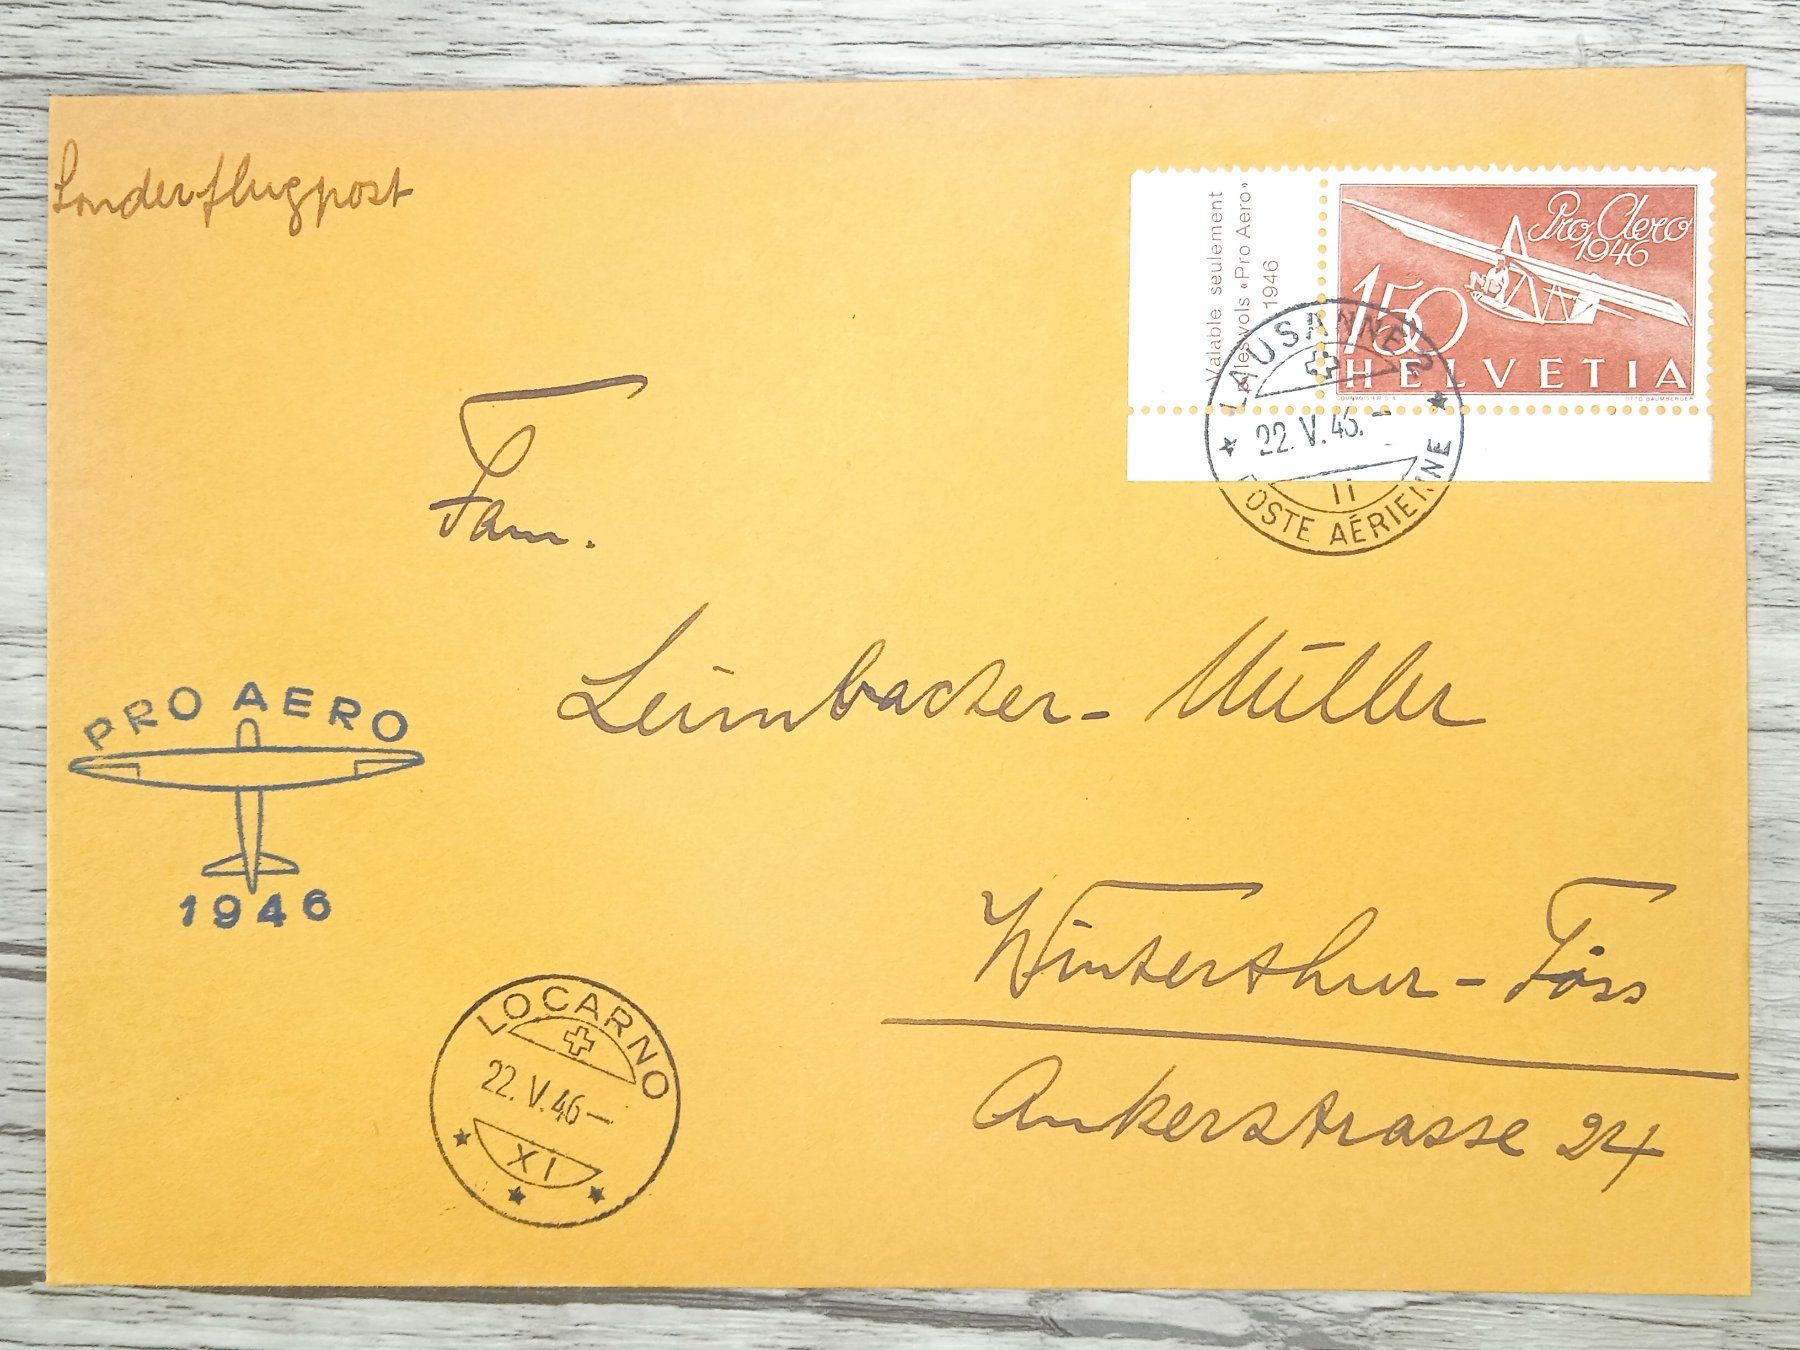 Sonderflugpost
Valable seulement
p. les vols «Pro Aero»
1946
Pro Aero
1946
150
HELVETIA
COURVOISIER S.A.
OTTO BAUMBERGER
LAUSANNE 2
22. V. 46. –
11
POSTE AÉRIENNE
Fam.
Leimbacher - Müller
PRO AERO
1946
Winterthur - Töss
Ankerstrasse 24
LOCARNO
22. V. 46 –
XI